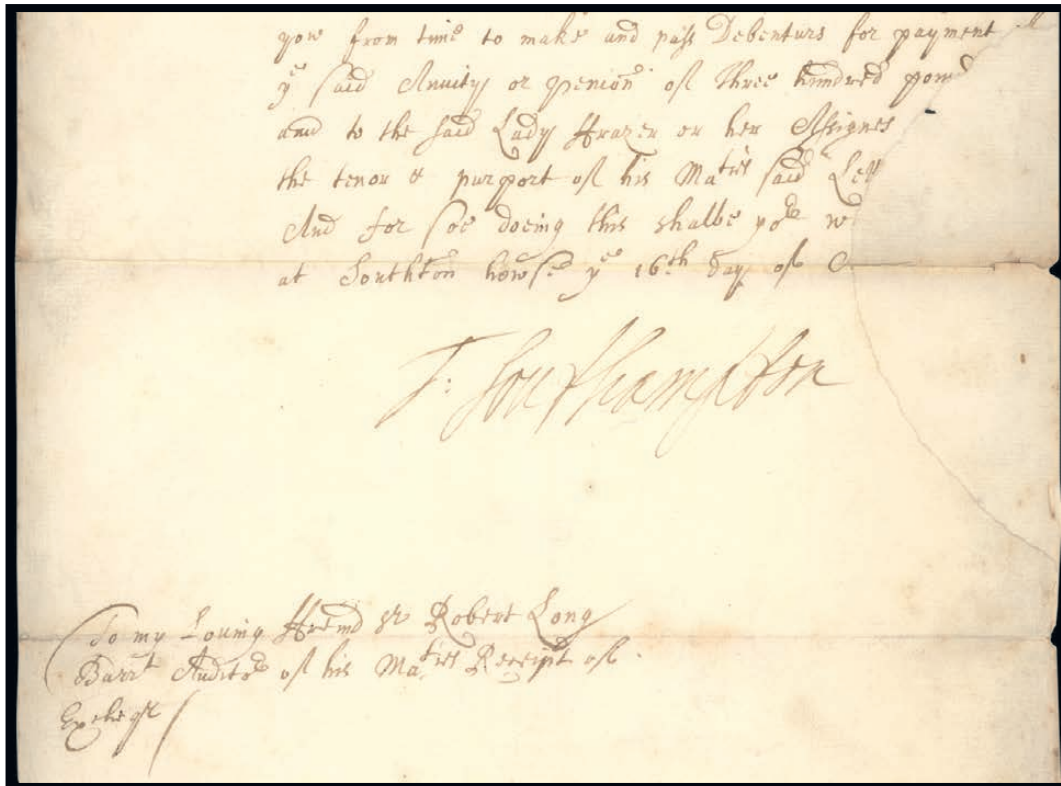 you from time to make and pass Debenturs for payment
yᵉ said Anuity or pencion of Three hundred pound
and to the said Lady Frazer or her Assignes
the tenor & purport of his Maᵗⁱᵉˢ said
And for soe doeing this shalbe yoʳ
at Southton howse yᵉ 16th day of
T: Southampton
To my Loving Freind Sʳ Robert Long
Barrᵗ Auditoʳ of his Maᵗⁱᵉˢ Receipt of
Excheqʳ